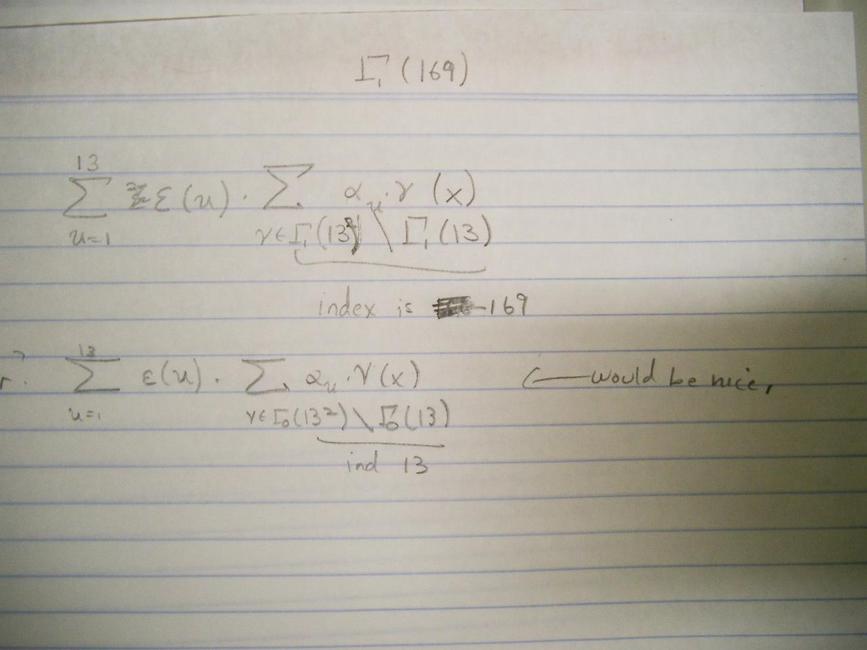 Γ₁(169)
∑_{u=1}^{13} ε(u) · ∑_{γ∈Γ₁(13²)\Γ₁(13)} α_u · γ(x)
index is 169
r? ∑_{u=1}^{13} ε(u) · ∑_{γ∈Γ₀(13²)\Γ₀(13)} α_u · γ(x) ← would be nice,
ind 13